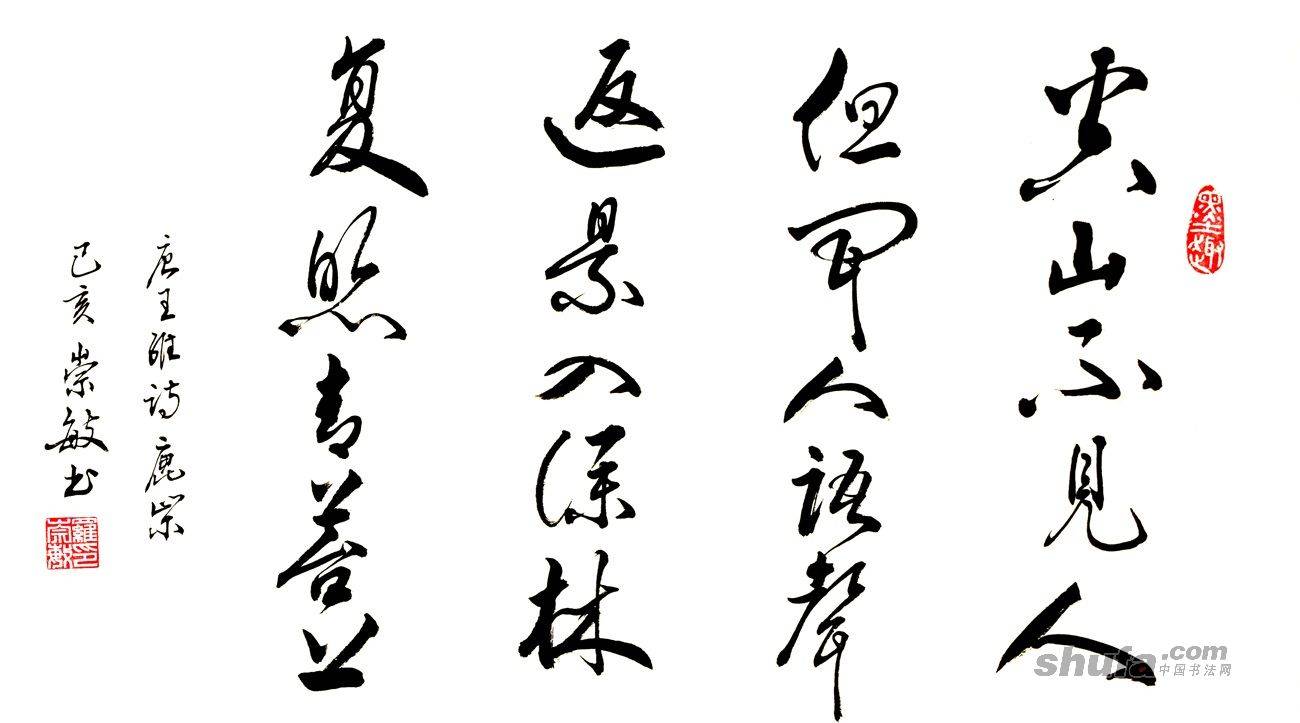 空山不見人
但聞人語聲
返景入深林
复照青苔上
唐王維詩鹿柴
己亥崇敏书
墨趣
羅崇敏印
shufa.com
中国书法网